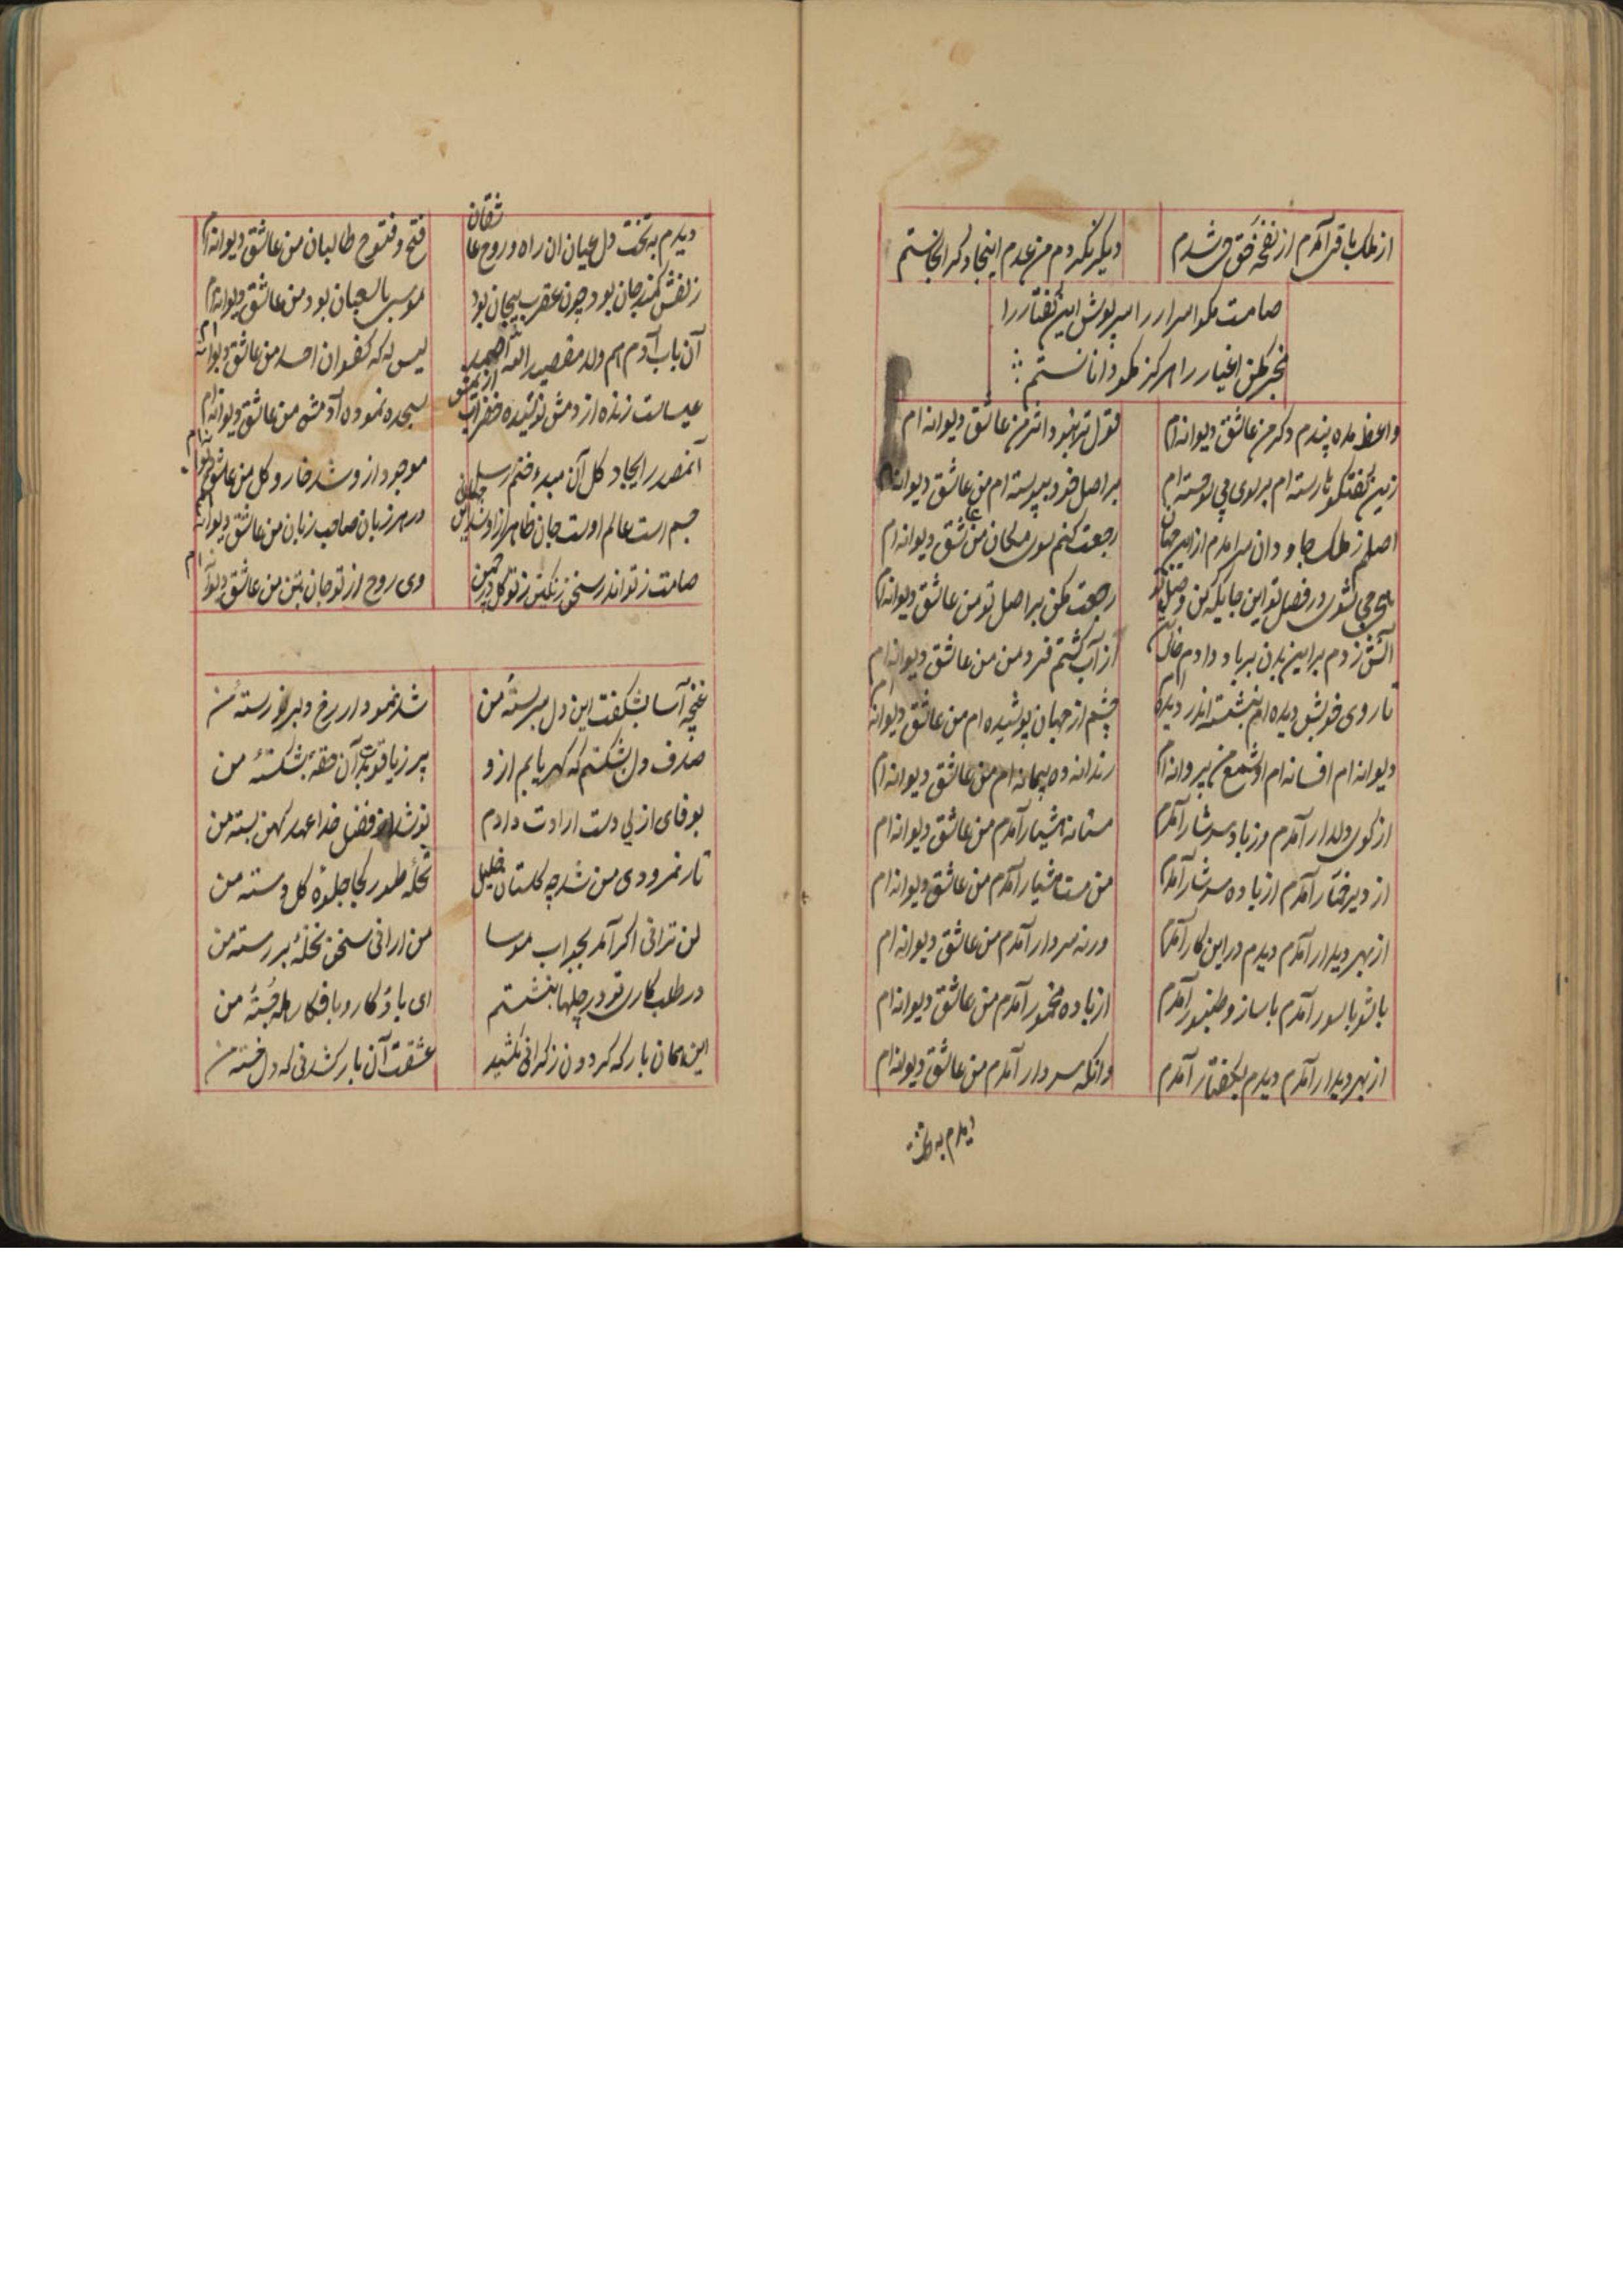 از ملک باقی آمدم از نفخهٔ حق شدم
دیگر نگردم من عدم اینجا و گر آنجاستم
صامت مگو اسرار را میپوش این گفتار را
مخبر مکن اغیار را هرگز مگو داناستم
واعظ مده پندم دگر من عاشق دیوانه ام
قول تو نبود اثر من عاشق دیوانه ام
زین گفتگو تا رسته ام
بر اصل خود پیوسته ام من عاشق دیوانه ام
اصلم ز ملک جاودان سرآمدم از این جهان
رجعت کنم سوی مکان من عاشق دیوانه ام
می شوی در فصل تو این جا یکه کن وصل تو
رجعت مکن بر اصل تو من عاشق دیوانه ام
آتش زدم بر این بدن بر باد دادم خاک تن
از آب گشتم فرد من من عاشق دیوانه ام
تا روی خوبش دیده ام بنشسته اندر دیده ام
چشم از جهان پوشیده ام من عاشق دیوانه ام
دیوانه ام افسانه ام او شمع من پروانه ام
رندانه ده پیمانه ام من عاشق دیوانه ام
از کوی دلدار آمدم وز باده سرشار آمدم
مستانه هشیار آمدم من عاشق دیوانه ام
از دیر آمدم از باده سرشار آمدم
من مست هشیار آمدم من عاشق دیوانه ام
از بهر دیدار آمدم دیدم در این کار آمدم
ورنه سردار آمدم من عاشق دیوانه ام
با شور با سور آمدم با ساز و طنبور آمدم
از باده مخمور آمدم من عاشق دیوانه ام
از بهر دیدار آمدم دیدم بگفتار آمدم
وانکه سردار آمدم من عاشق دیوانه ام
دیدم به تخت
دیدم به تخت دل عیان آن راه و روح عاشقان
فتح و فتوح طالبان من عاشق دیوانه ام
زلفش کمند جان بود چون عقرب پیچان بود
موسی با ثعبان بود من عاشق دیوانه ام
آن باب آدم هم ولد مقصید الله الصمد
لیس له کفوا احد من عاشق دیوانه ام
عیساست زنده از دمش نوشیده خضر آب از یمش
سجده نموده آدمش من عاشق دیوانه ام
آنمصدر ایجاد کل آن مبدء ختم رسل
موجود از او شد خار و گل من عاشق دیوانه ام
جسم است عالم اوست جان ظاهر از او شد این جهان
در هر زبان صاحب زبان من عاشق دیوانه ام
صامت ز تو اندر سخن رنگین ز تو گل در چمن
وی روح از تو جان بتن من عاشق دیوانه ام
غنچه آسا بشکفت این دل سربستهٔ من
شد نمودار رخ دلبر رستهٔ من
صدف دل بشکستم که گهر یابم از او
پر ز یاقوت آن حقهٔ بشکستهٔ من
بوفای ازلی دست ارادت دادم
نو شد از فضل خدا عهد کهن بسته من
نار نمرودی من شد چه گلستان خلیل
نخلهٔ طور کجا جلوهٔ گل دسته من
لن ترانی اگر آمد بجواب موسا
من ارانی سخن نخلهٔ بر رسته من
در طلب کاری تو در چلها بنشستم
این همان بار که گردون ز گرانی نکشید
عشقت آن بار کشد نی که دل خسته من